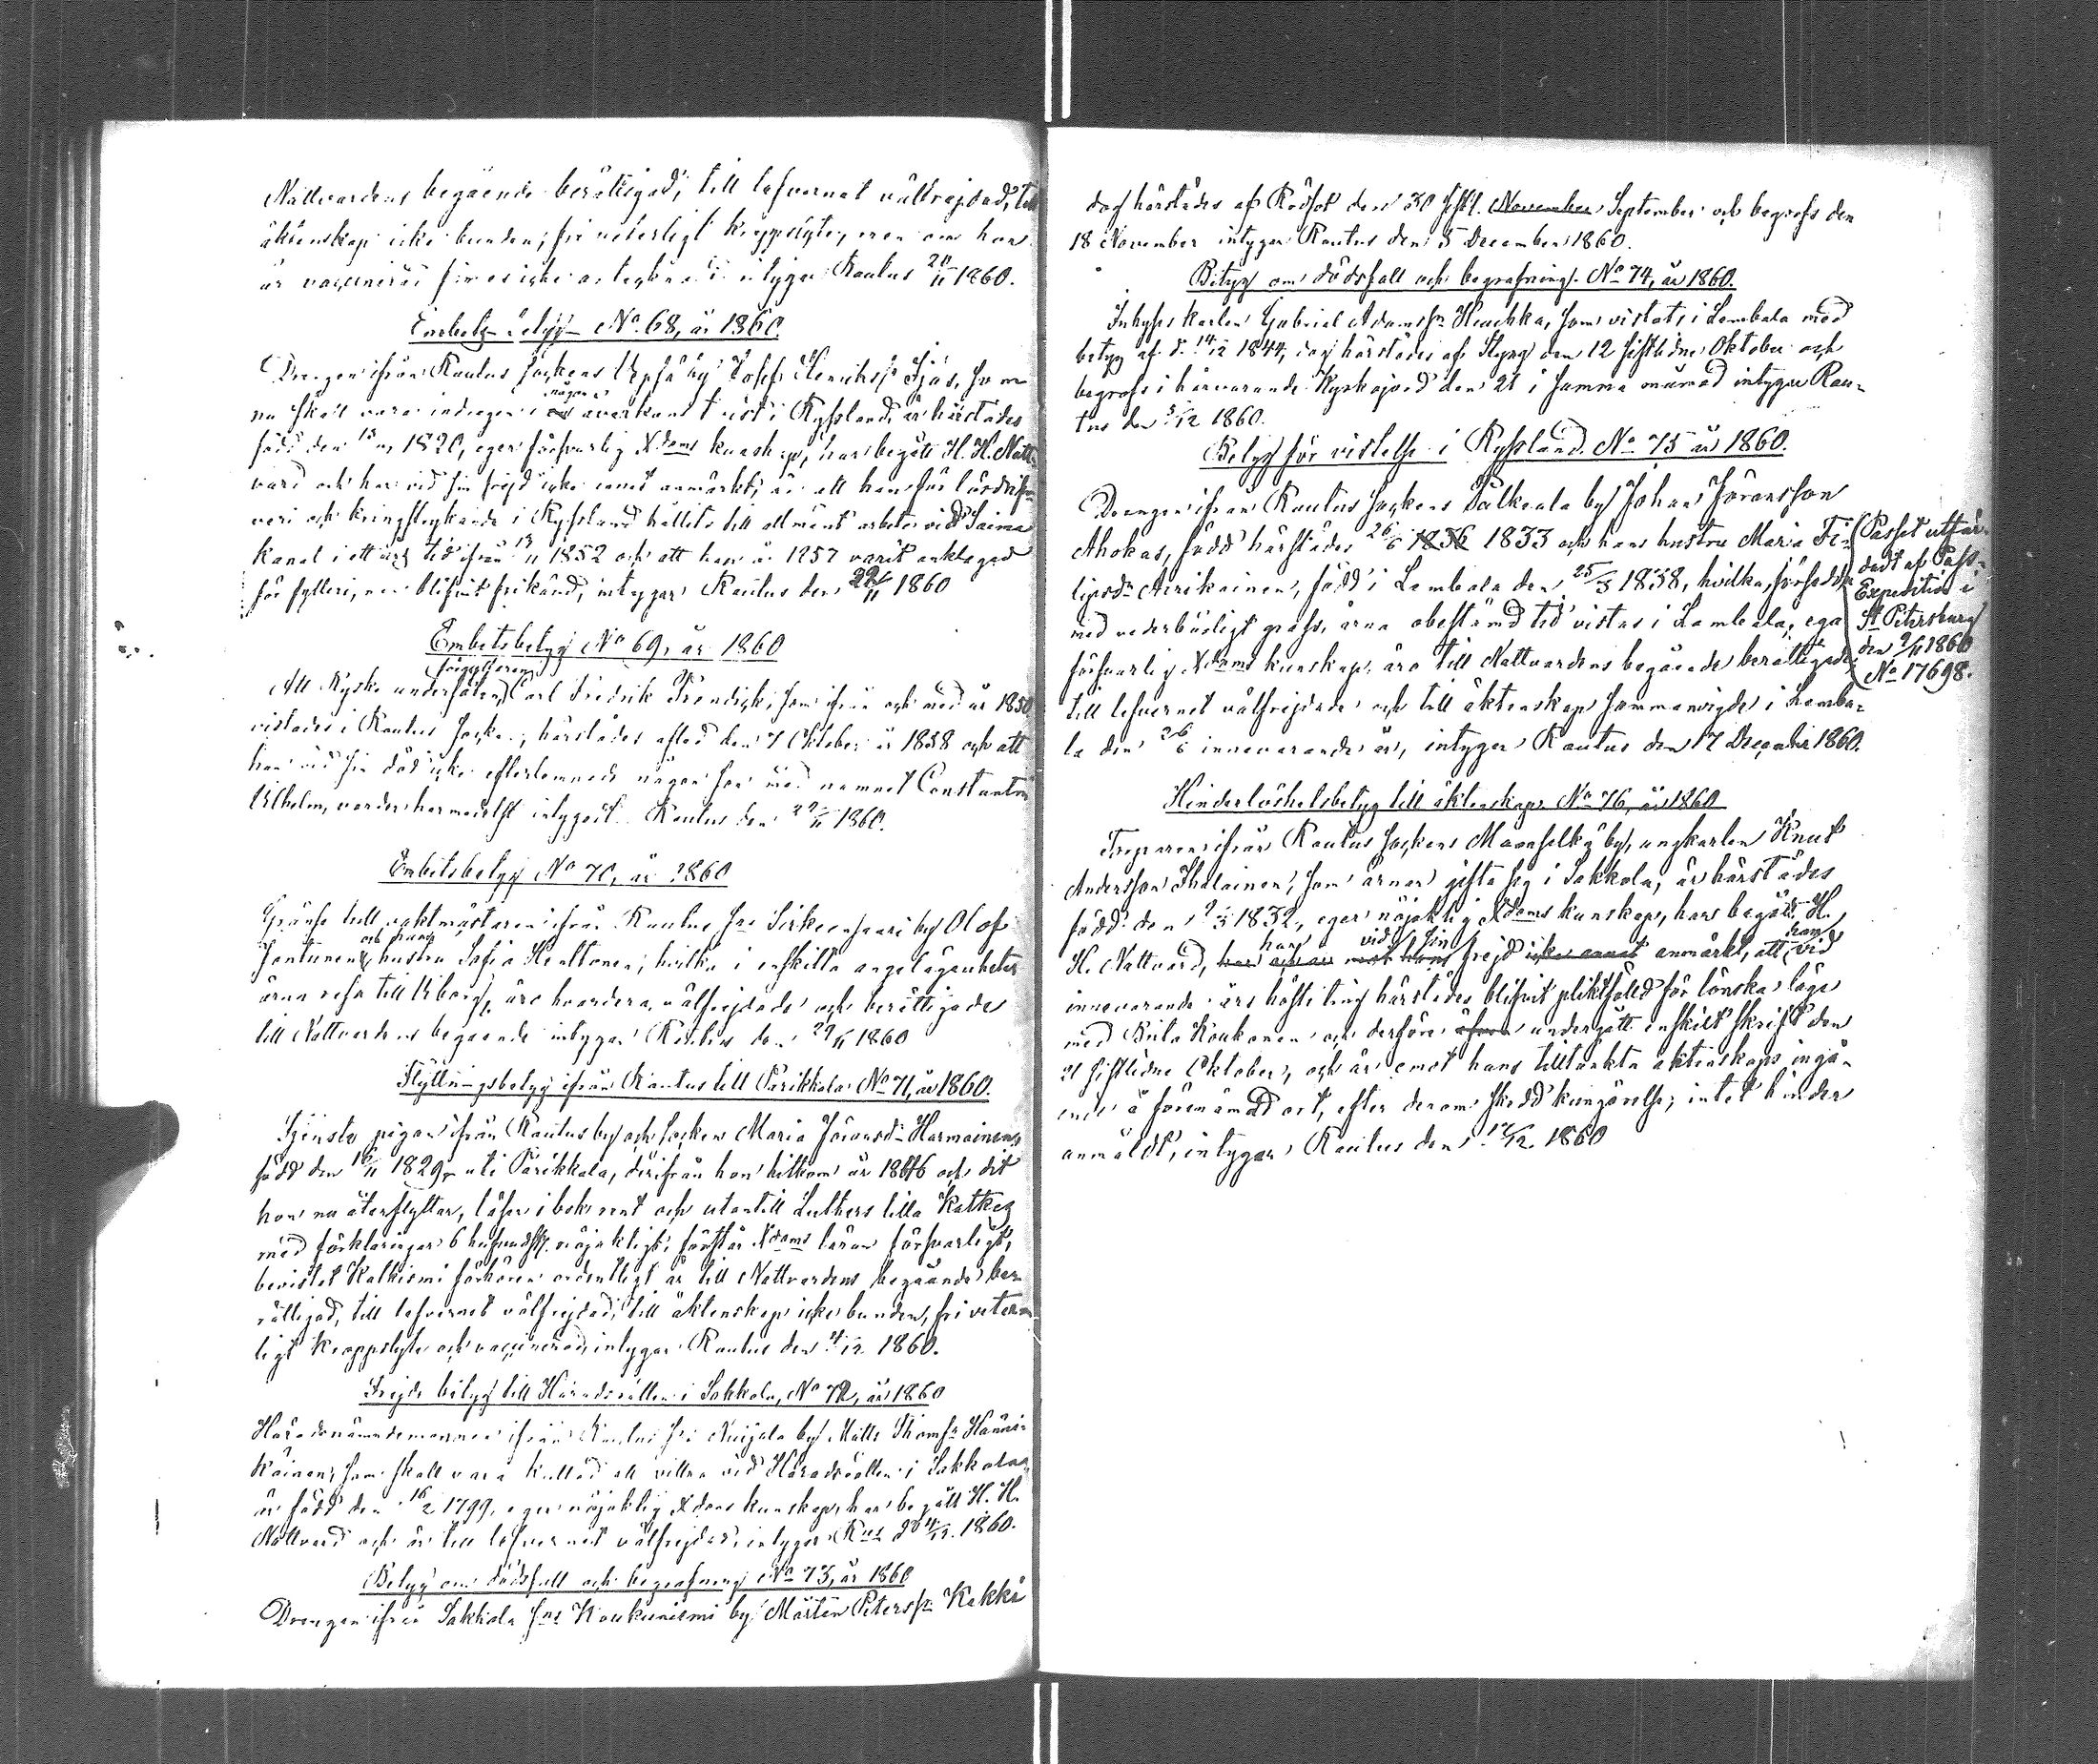 Nattvardens begående berättigad, till lefvernet välfrejdad, till
äktenskap icke bunden, fri veterligt kroppslyte, men om hon
är vaccinerad finnes icke antecknadt intygar Rautus 20/11 1860.
Embets betyg No 68, år 1860.
Drengen ifrån Rautus sockens by Josef Henrikss: Sjös, som
nu skall vara indragen i någon averkan t vist i Ryssland, är härstädes
född den 1820, eger försvarlig Xdoms kunskap, har begått H. H. Natt-
vard och har vid sin frejd icke annat anmärkt, än att han för lösdrif-
veri och kringstrykande i Ryssland hållits till allmänt arbete vid Saima
Kanal i ett års tid ifrån 13/11 1852 och att han år 1857 varit anklagad
för fylleri, men blifvit frikänd, intygar Rautus den 22/11 1860
Embetsbetyg No 69, år 1860
Att Ryske undersåten (förgyllaren) Carl Fredrik Frendisch, som ifrån och med år 1850
vistades i Rautus Socken, härstädes afled den 7 Oktober år 1858 och att
han vid sin död icke efterlemnade någon son med namnet Constantin
Vilhelm, varder härmedelst intygadt. Rautus den 22/11 1860.
Embetsbetyg No 70, år 1860
Gräns tull vaktmästaren ifrån Rautus Sns Sirkeensaari by Olof
Jantunen och hans hustru Sofia Henttonen, hvilka i enskilta angelägenheter
ärna resa till Viborg, äro hvardera välfrejdade och berättigade
till Nattvardens begående intygar Rautus den 29/11 1860
Flyttningsbetyg ifrån Rautus till Parikkala No 71, år 1860.
Tjenste pigan ifrån Rautus by och Socken Maria Göransdr Harmainen,
född den 16/11 1829 uti Parikkala, derifrån hon hitkom år 1846 och dit
hon nu återflyttar, läser i bok rent och utantill Luthers lilla Katkes
med förklaringar 6 hufvudst. nöjaktigt, förstår Xdoms läran försvarligt,
bevistat Katkismi förhören ordentligt är till Nattvardens begående be-
rättigad, till lefvernet välfrejdad, till äktenskap icke bunden, fri veter-
ligt kroppslyte och vaccinerad, intygar Rautus den 4/12 1860.
Frejde betyg till Häradsrätten i Sakkola, No 72, år 1860
Häradsnämndemannen ifrån Rautus Sns by Matts Thomss: Hänni-
käinen, som skall vara kallad att vittna vid Häradsrätten i Sakkola,
är född den 16/2 1799, eger nöjaktig Xdoms kunskap, har begått H. H.
Nattvard och är till lefvernet välfrejdad, intygar Rus d. 4/12 1860.
Betyg om dödsfall och begrafning No 73, år 1860
Drengen ifrån Sakkola Sns Koukuniemi by Mårten Peterss: Kakki
dog härstädes af Rödsot den 30 sistl. November September och begrofs den
18 November intygar Rautus den 5 December 1860.
Betyg om dödsfall och begrafning. No 74, år 1860.
Inhyses karlen Gabriel Adamss: , som vistats i Lembala med
betyg af d. 14/12 1844, dog härstädes af Styng den 12 sistledne Oktober och
begrofs i härvarande Kyrkogård den 21 i samma månad intygar Rau-
tus den 5/12 1860.
Betyg för vistelse i Ryssland. No 75 år 1860.
Drengen ifrån Rautus sockens Palkeala by Johan Göransson
Ahokas, född härstädes 26/6 1836 1833 och hans hustru Maria Fi-
lipsdr Airikainen, född i Lembala den 25/3 1838, hvilka, försedde
med vederbörligt pass, ärna obestämd tid vistas i Lembala, ega
försvarlig Xdoms kunskap, äro till Nattvardens begående berättigade,
till lefvernet välfrejdade och till äktenskap sammanvigde i Lemba-
la den 26/6 innevarande år, intygar Rautus den 17 December 1860.
Passet utfär-
dadt af Pass-
Expedition i
St Petersburg
den 9/11 1860
No 17698.
Hinderlöshetsbetyg till äktenskap. No 76, år 1860
Torparen ifrån Rautus sockens Maanselkä by, ungkarlen Knut
Andersson Ihalainen, som ärnar gifta sig i Sakkola, är härstädes
född den 9/3 1832, eger nöjaktig Xdoms kunskap, har begått H.
H. Nattvard, har vid sin frejd icke annat anmärkt, att han vid
innevarande års hösteting härstädes blifvit pliktfälld för lönska läge
med Koukonen och derföre äfven undergått enskilt skrift den
21 sistlidne Oktober, och är emot hans tilltänkta äktenskaps ingå-
ende å förenämnd ort, efter derom skedd kungörelse, intet hinder
anmäldt, intygar Rautus den 17/12 1860